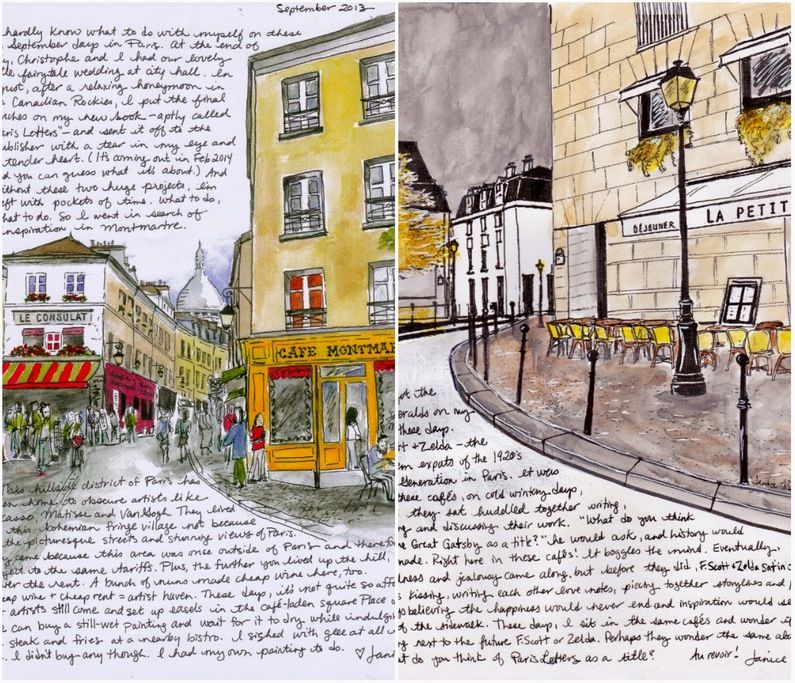 September 2013
hardly know what to do with myself on these
September days in Paris. At the end of
y, Christophe and I had our lovely
tle fairytale wedding at city hall. In
gust, after a relaxing honeymoon in
e Canadian Rockies, I put the final
uches on my new book – aptly called
aris Letters" – and sent it off to the
ublisher with a tear in my eye and
tender heart. (It's coming out in Feb 2014
d you can guess what it's about.) And
ithout these two huge projects, I'm
eft with pockets of time. What to do,
hat to do. So I went in search of
inspiration in Montmartre.
LE CONSULAT
CAFE MONTMAR
This hillside district of Paris has
en home to obscure artists like
casso, Matisse and Van Gogh. They lived
this bohemian fringe village not because
the picturesque streets and stunning views of Paris.
y came because this area was once outside of Paris and therefo
ject to the same tariffs. Plus, the further you lived up the hill,
er the rent. A bunch of nuns made cheap wine here, too.
eap wine + cheap rent = artist haven. These days, it's not quite so aff
artists still come and set up easels in the café-laden square Place
e can buy a still-wet painting and wait for it to dry while indulgin
steak and fries at a nearby bistro. I sighed with glee at all
. I didn't buy any though. I had my own painting to do. ♡ Jani
DÉJEUNER
LA PETIT
ot the
eralds on my
these days.
tt + Zelda – the
m expats of the 1920's
Generation in Paris. It was
these cafés, on cold wintry days,
they sat huddled together writing,
g and discussing their work. "What do you think
e Great Gatsby as a title?" he would ask, and history would
made. Right here in these cafés! It boggles the mind. Eventually,
lness and jealousy came along, but before they did, F. Scott + Zelda sat in
kissing, writing each other love notes, piecing together storylines and
s believing the happiness would never end and inspiration would se
f the sidewalk. These days, I sit in the same cafés and wonder
g next to the future F. Scott or Zelda. Perhaps they wonder the same
t do you think of Paris Letters as a title? Au revoir! Janice